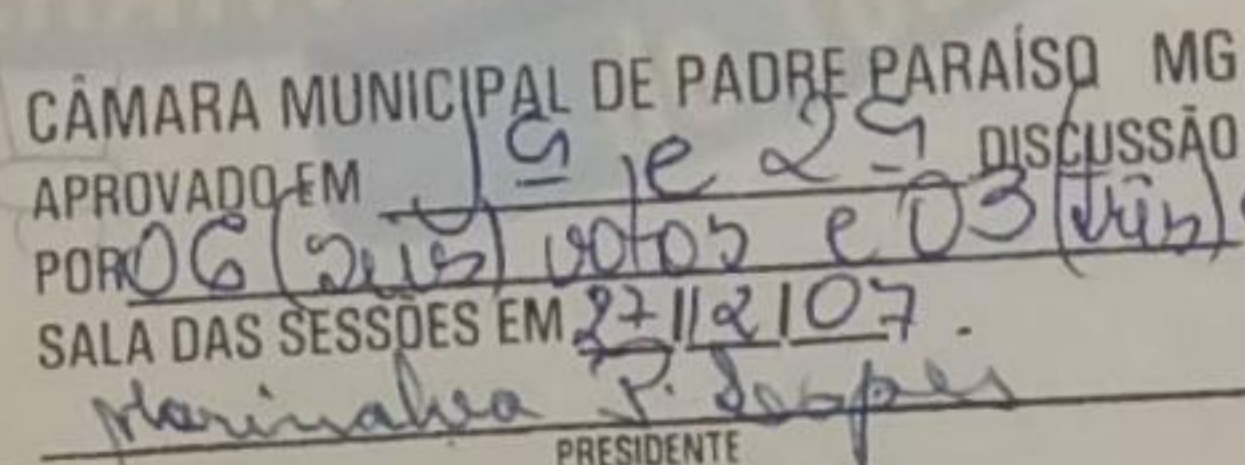 CÂMARA MUNICIPAL DE PADRE PARAÍSO MG
APROVADO EM 1ª e 2ª DISCUSSÃO
POR 06 (seis) votos e 03 (três)
SALA DAS SESSÕES EM 27/12/07.
Marinalva P. Sospes
PRESIDENTE